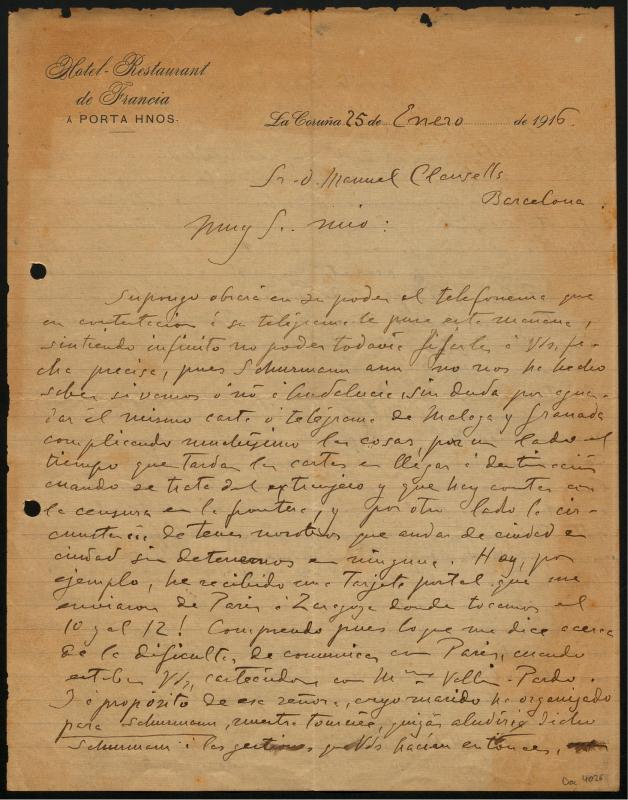 Hotel-Restaurant
de Francia
A PORTA HNOS.
La Coruña 25 de Enero de 1916
Sr. d. Manuel Clausells
Barcelona.
Muy Sr. mio:
Supongo obrará en su poder el telefonema que
en contestación á su telégrama le puse esta mañana,
sintiendo infinito no poder todavía fijarles á Vds. fe-
cha precisa, pues Schurmann aun no nos ha hecho
saber si vamos ó nó á Andalucía, sin duda por aguar-
dar él mismo carta ó telégrama de Malaga y Granada
complicando muchísimo las cosas, por un lado el
tiempo que tardan las cartas en llegar á destinación
cuando se trata del extranjero y que hay contar con
la censura en la frontera, y por otro lado la cir-
cunstancia de tener nosotros que andar de ciudad en
ciudad sin detenernos en ninguna. Hoy, por
ejemplo, he recibido una Tarjeta postal que me
enviaron de Paris á Zaragoza donde tocamos el
10 y al 12! Comprendo pues lo que me dice acerca
de la dificultad de comunicar con Paris, cuando
estaban Vds. carteándose con Mme Vallin-Pardo.
Y á propósito de esa señora, cuyo marido ha organizado
para Schurmann, nuestra tournée, quizás aludiría dicho
Schurmann á las gestiones que Vds. hacían entonces,
Doc 4026